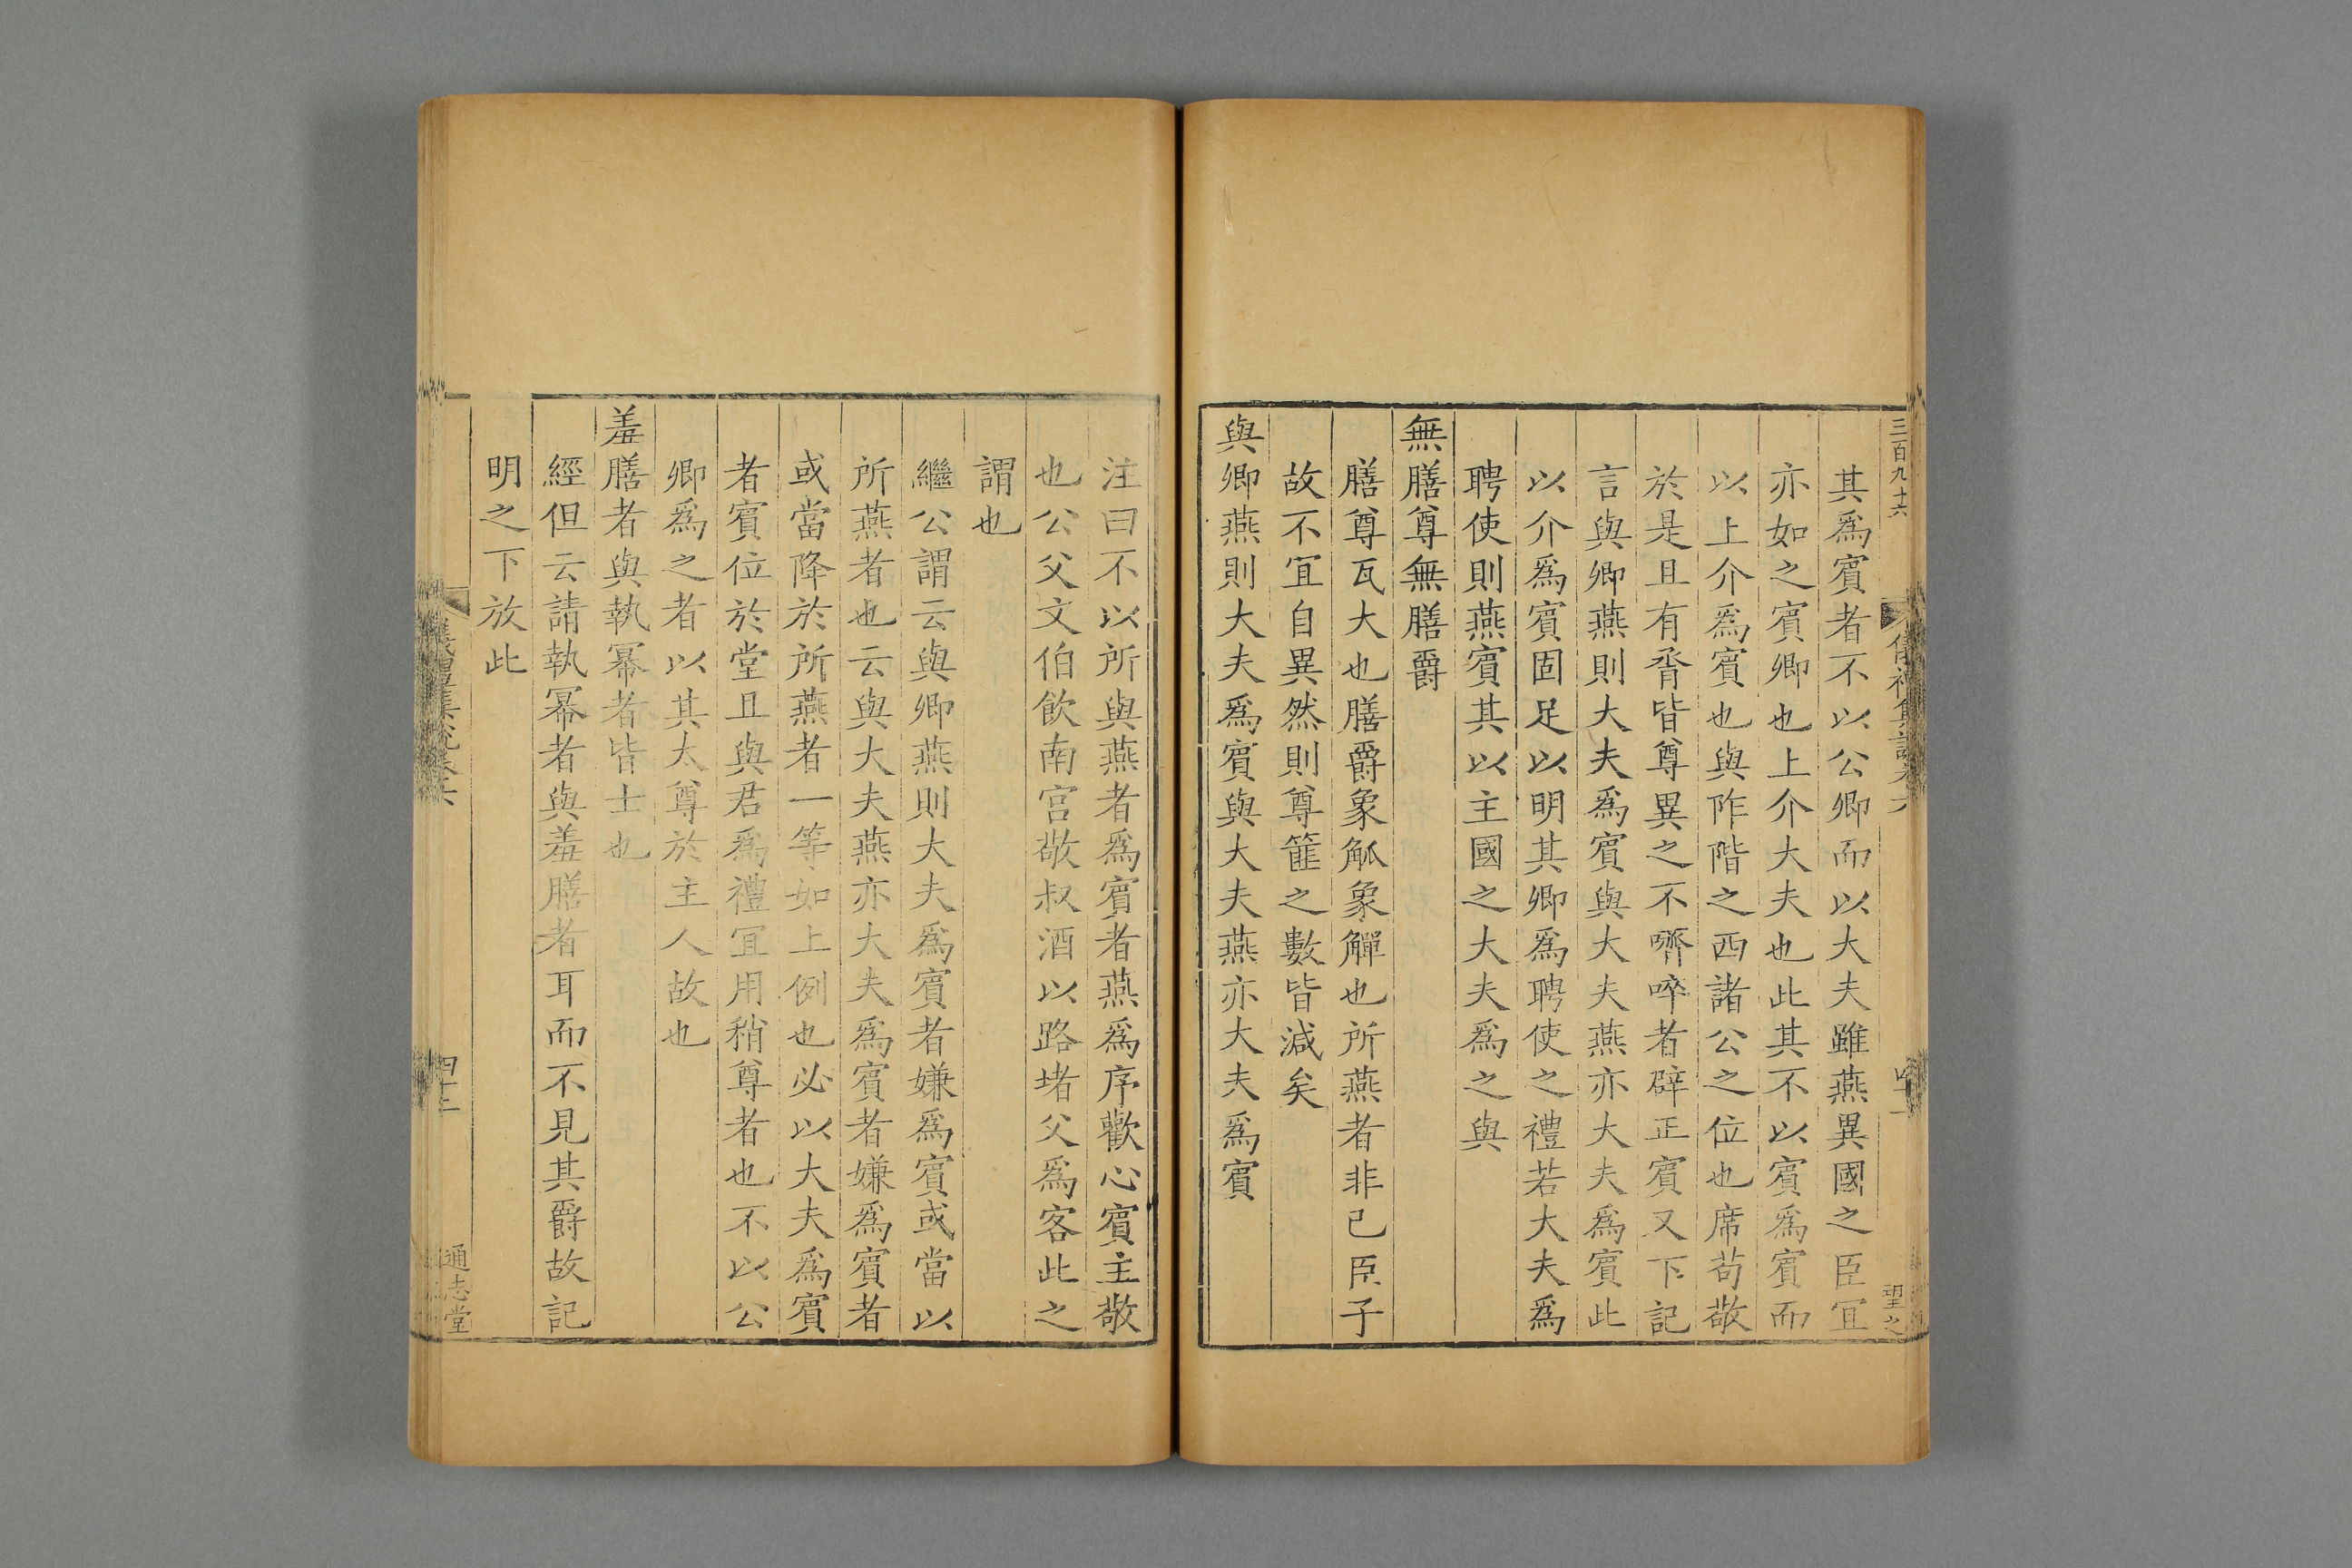 三百九十六
儀禮集說卷六
望之
其爲賓者不以公卿而以大夫雖燕異國之臣宜
亦如之賓卿也上介大夫也此其不以賓爲賓而
以上介爲賓也與阼階之西諸公之位也席苟敬
於是且有脀皆尊異之不嚌啐者辟正賓又下記
言與卿燕則大夫爲賓與大夫燕亦大夫爲賓此
以介爲賓固足以明其卿爲聘使之禮若大夫爲
聘使則燕賓其以主國之大夫爲之與
無膳尊無膳爵
膳尊瓦大也膳爵象觚象觶也所燕者非己臣子
故不宜自異然則尊篚之數皆減矣
與卿燕則大夫爲賓與大夫燕亦大夫爲賓
注曰不以所與燕者爲賓者燕爲序歡心賓主敬
也公父文伯飲南宮敬叔酒以路堵父爲客此之
謂也
繼公謂云與卿燕則大夫爲賓者嫌爲賓或當以
所燕者也云與大夫燕亦大夫爲賓者嫌爲賓者
或當降於所燕者一等如上例也必以大夫爲賓
者賓位於堂且與君爲禮宜用稍尊者也不以公
卿爲之者以其太尊於主人故也
羞膳者與執冪者皆士也
經但云請執冪者與羞膳者耳而不見其爵故記
明之下放此
儀禮集說卷六
四十二
通志堂